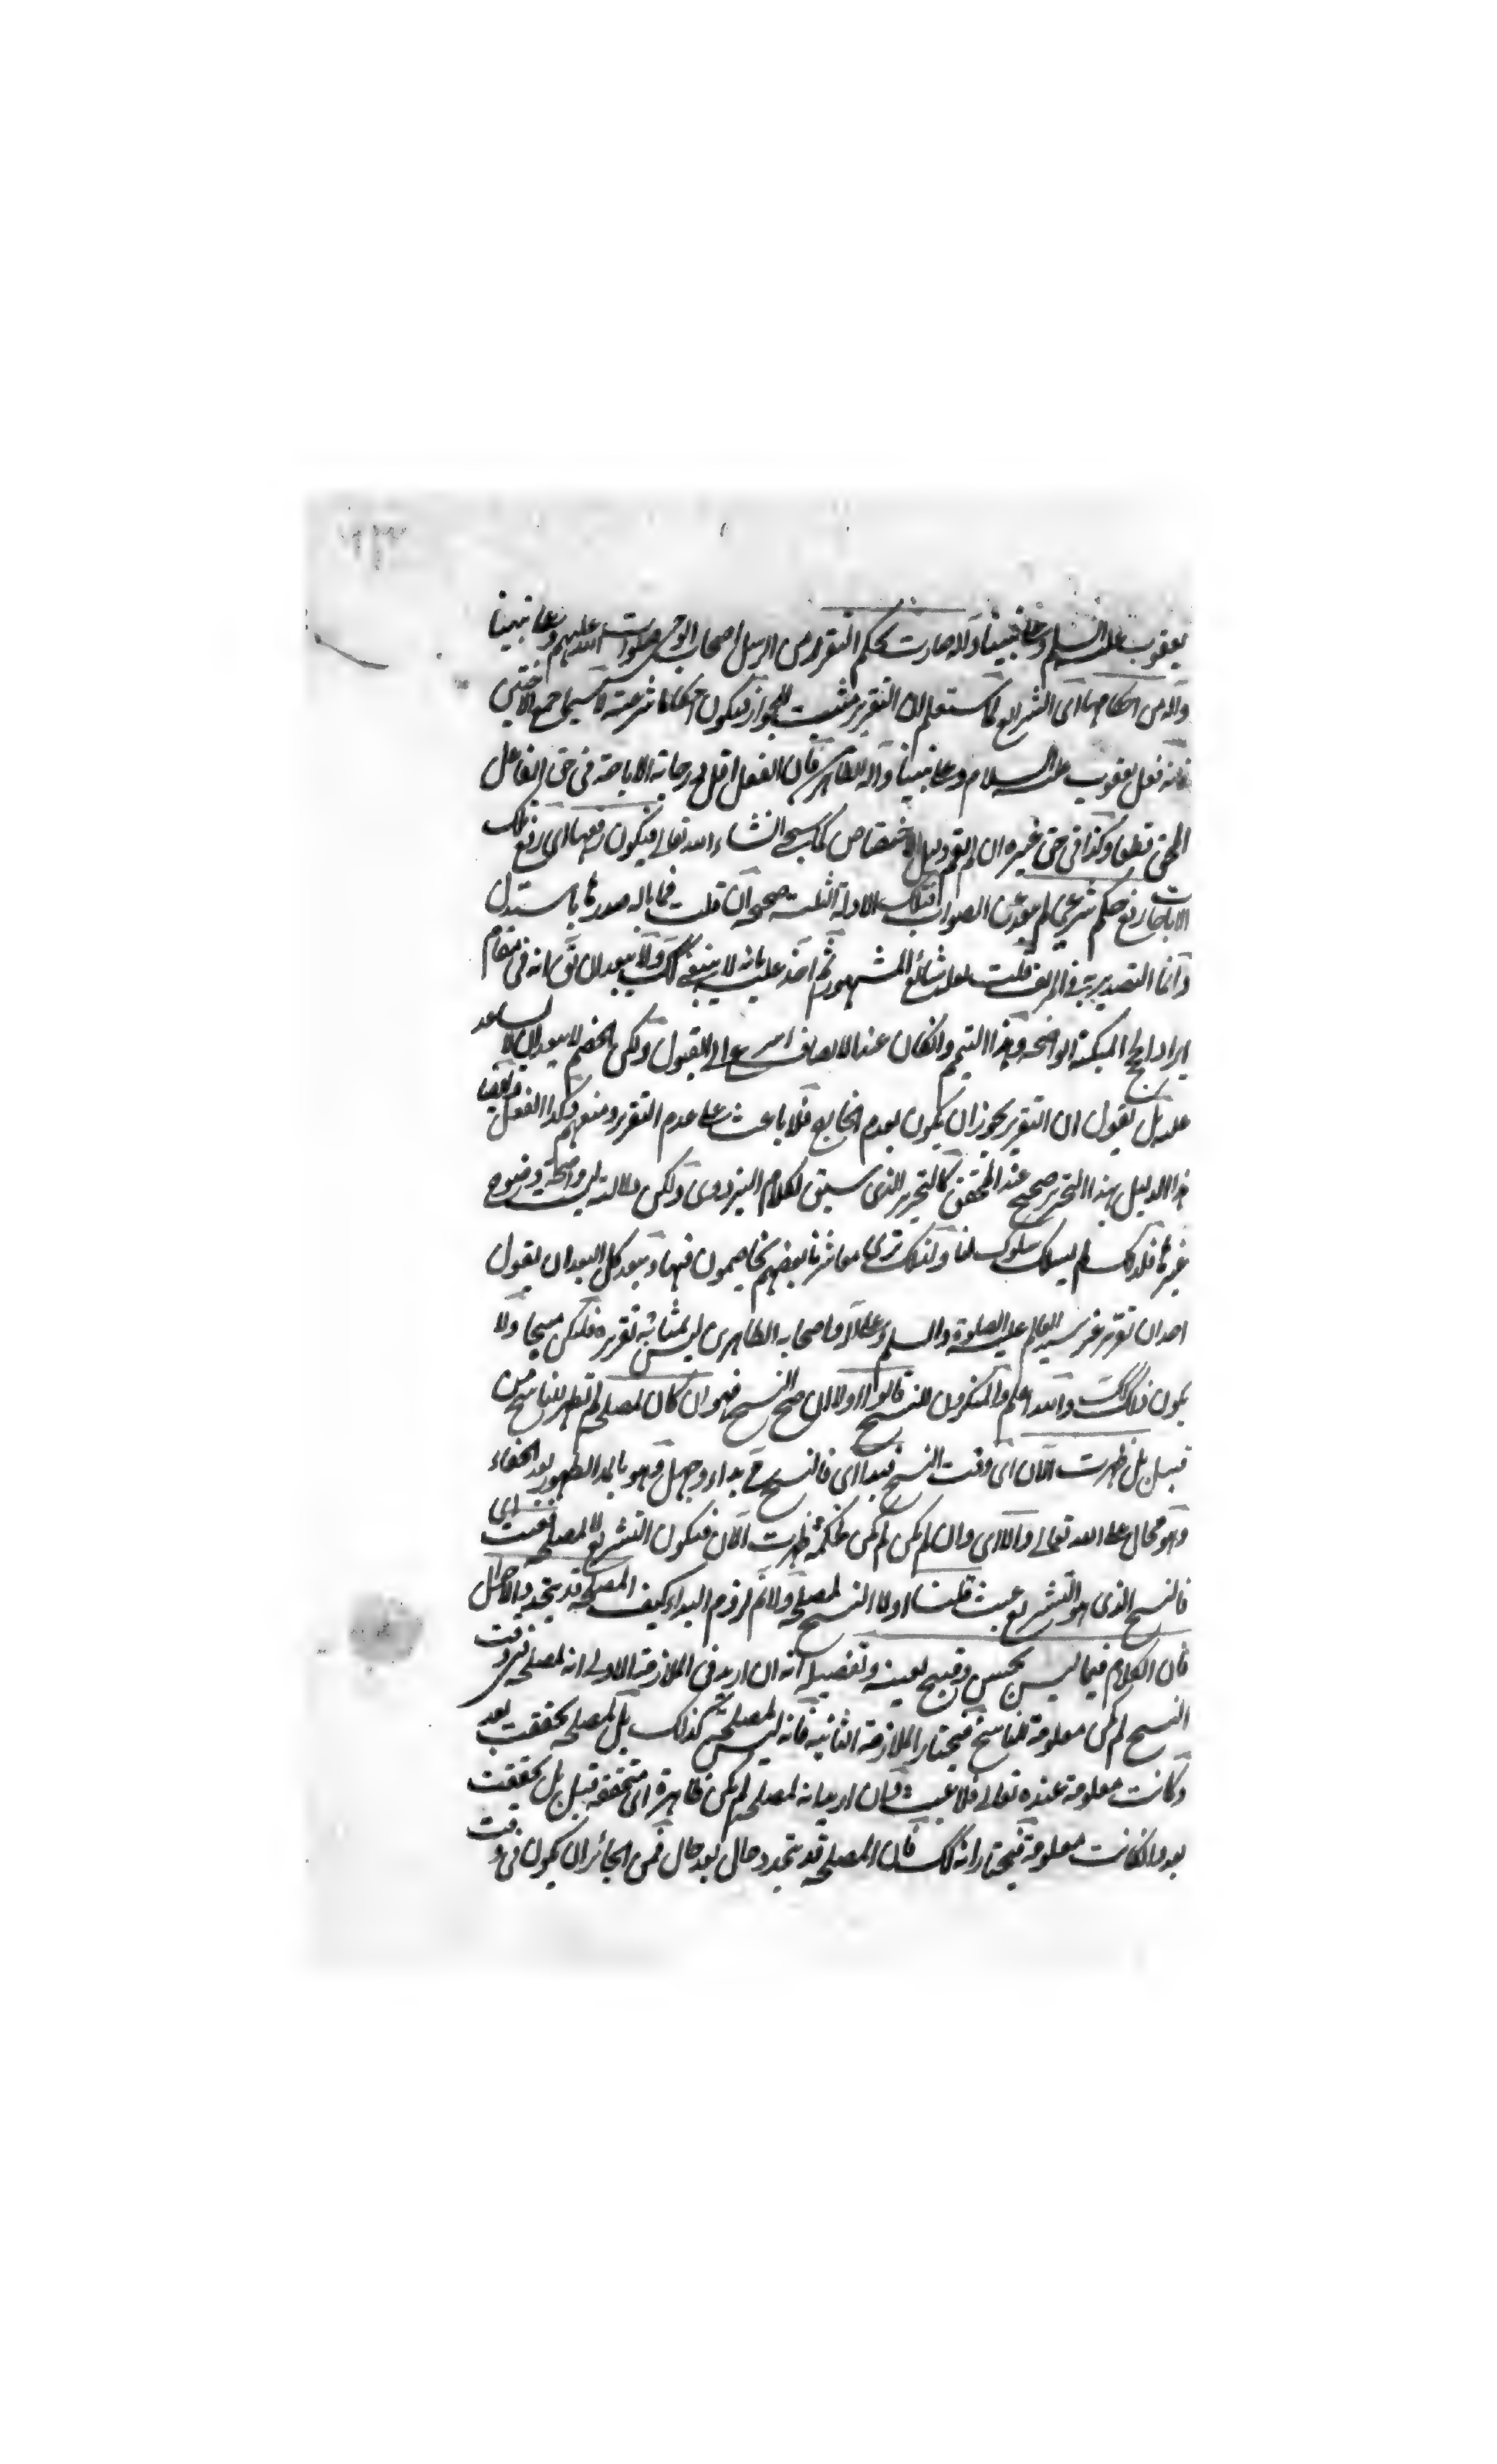 ٩٣
يعقوب عليه السلم وعلى نبينا وآله صارت بحكم التقرير من الرسل اصحاب الوحى صلوات الله عليهم وعلى نبينا
وآله من احكامها اى الشرايع كما ستعلم ان التقرير مثبت للجواز فيكون احكاما شرعية لا سيما جمع الاختين
فانه فعل يعقوب عليه السلام وعلى نبينا وآله الطاهرين فان الفعل اقل درجاته الاباحة فى حق الفاعل
قطعا وكذا فى حق غيره ان لم يقم دليل الاختصاص كما سيجئ انشاء الله تعالى فيكون رفعها اى رفع تلك
الاباحات رفع حكم شرعى لم يبعد عن الصواب فتلك الادلة الثلثة صحيحة فان قلت فما باله صدرها بما يستدل
وانما التصدير به فى المزيف قلت لعله شائع المشهور ثم اخذ عليه بانه لا ينبغى كك ولا يبعد ان يقال انه فى مقام
ايراد الحجج المبكتة الواضحة وهذا التتميم وانكان عند الانصاف اسرع الى القبول ولكن الخصم لا يبعد ان لا يساعد
عليه بل يقول ان التقرير يجوز ان يكون لعدم فلا باعث على عدم التقرير ومنعهم وكذا الفعل وايضا
هذا الدليل بهذا التحرير صحيح عند المحقق كالتحرير الذى سبق لكلام البزدوى ولكن دلالته ليست واضحة وضوح
غيرها فلذلك لم يسلك سلوك لنا ولذلك ترى معاشرنا بعضهم يخاصمون فيها ويبعد كل البعد ان يقول
احد ان تقرير غير سيد العالم عليه الصلوة والسلم وعلى آله واصحابه الطاهرين ليس بمثابة تقريره فليكن مبيحا ولا
يكون ذلك كك والله اعلم والمنكرون للنسخ قالوا اولا ان صح النسخ فهو ان كان لمصلحة لم تظهر للناسخ من
قبل بل ظهرت الآن اى وقت النسخ فبداء اى فالنسخ ح بداء وجهل وهو بالمد الظهور بعد الخفاء
وهو محال على الله تعالى والا اى وان لم يكن لم يكن لحكمة ظهرت الآن فيكون التشريع لا لمصلحة فعبث اى
فالنسخ الذى هو التشريع عبث قلنا اولا النسخ لمصلحة ولا نم لزوم البداء كيف المصلحة قد يتجدد بالاحوال
فان الكلام فيما ليس بحسن وقبيح لعينه وتفصيله انه ان اريد فى الملازمة الاولى انه لمصلحة فى وقت
النسخ لم يكن معلومة للناسخ فيختار الملازمة الثانية فانه ليس لمصلحة كذلك بل لمصلحة تحققت بعد
وكانت معلومة عنده تعالى فلا عبث وان اريد انه لمصلحة لم يكن ظاهرة اى متحققة قبل بل تحققت
بعد وانكانت معلومة فيختار انه كك فان المصلحة قد تتجدد حال بعد حال فمن الجائز ان يكون فى وقت